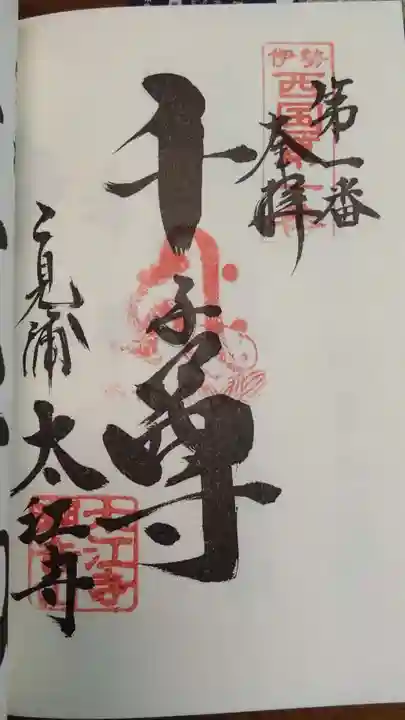 第一番
奉拝
伊勢
西国第一番
千手尊
二見浦
太江寺
太江寺